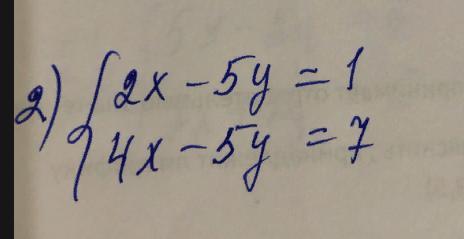 2) { 2x - 5y = 1
4x - 5y = 7